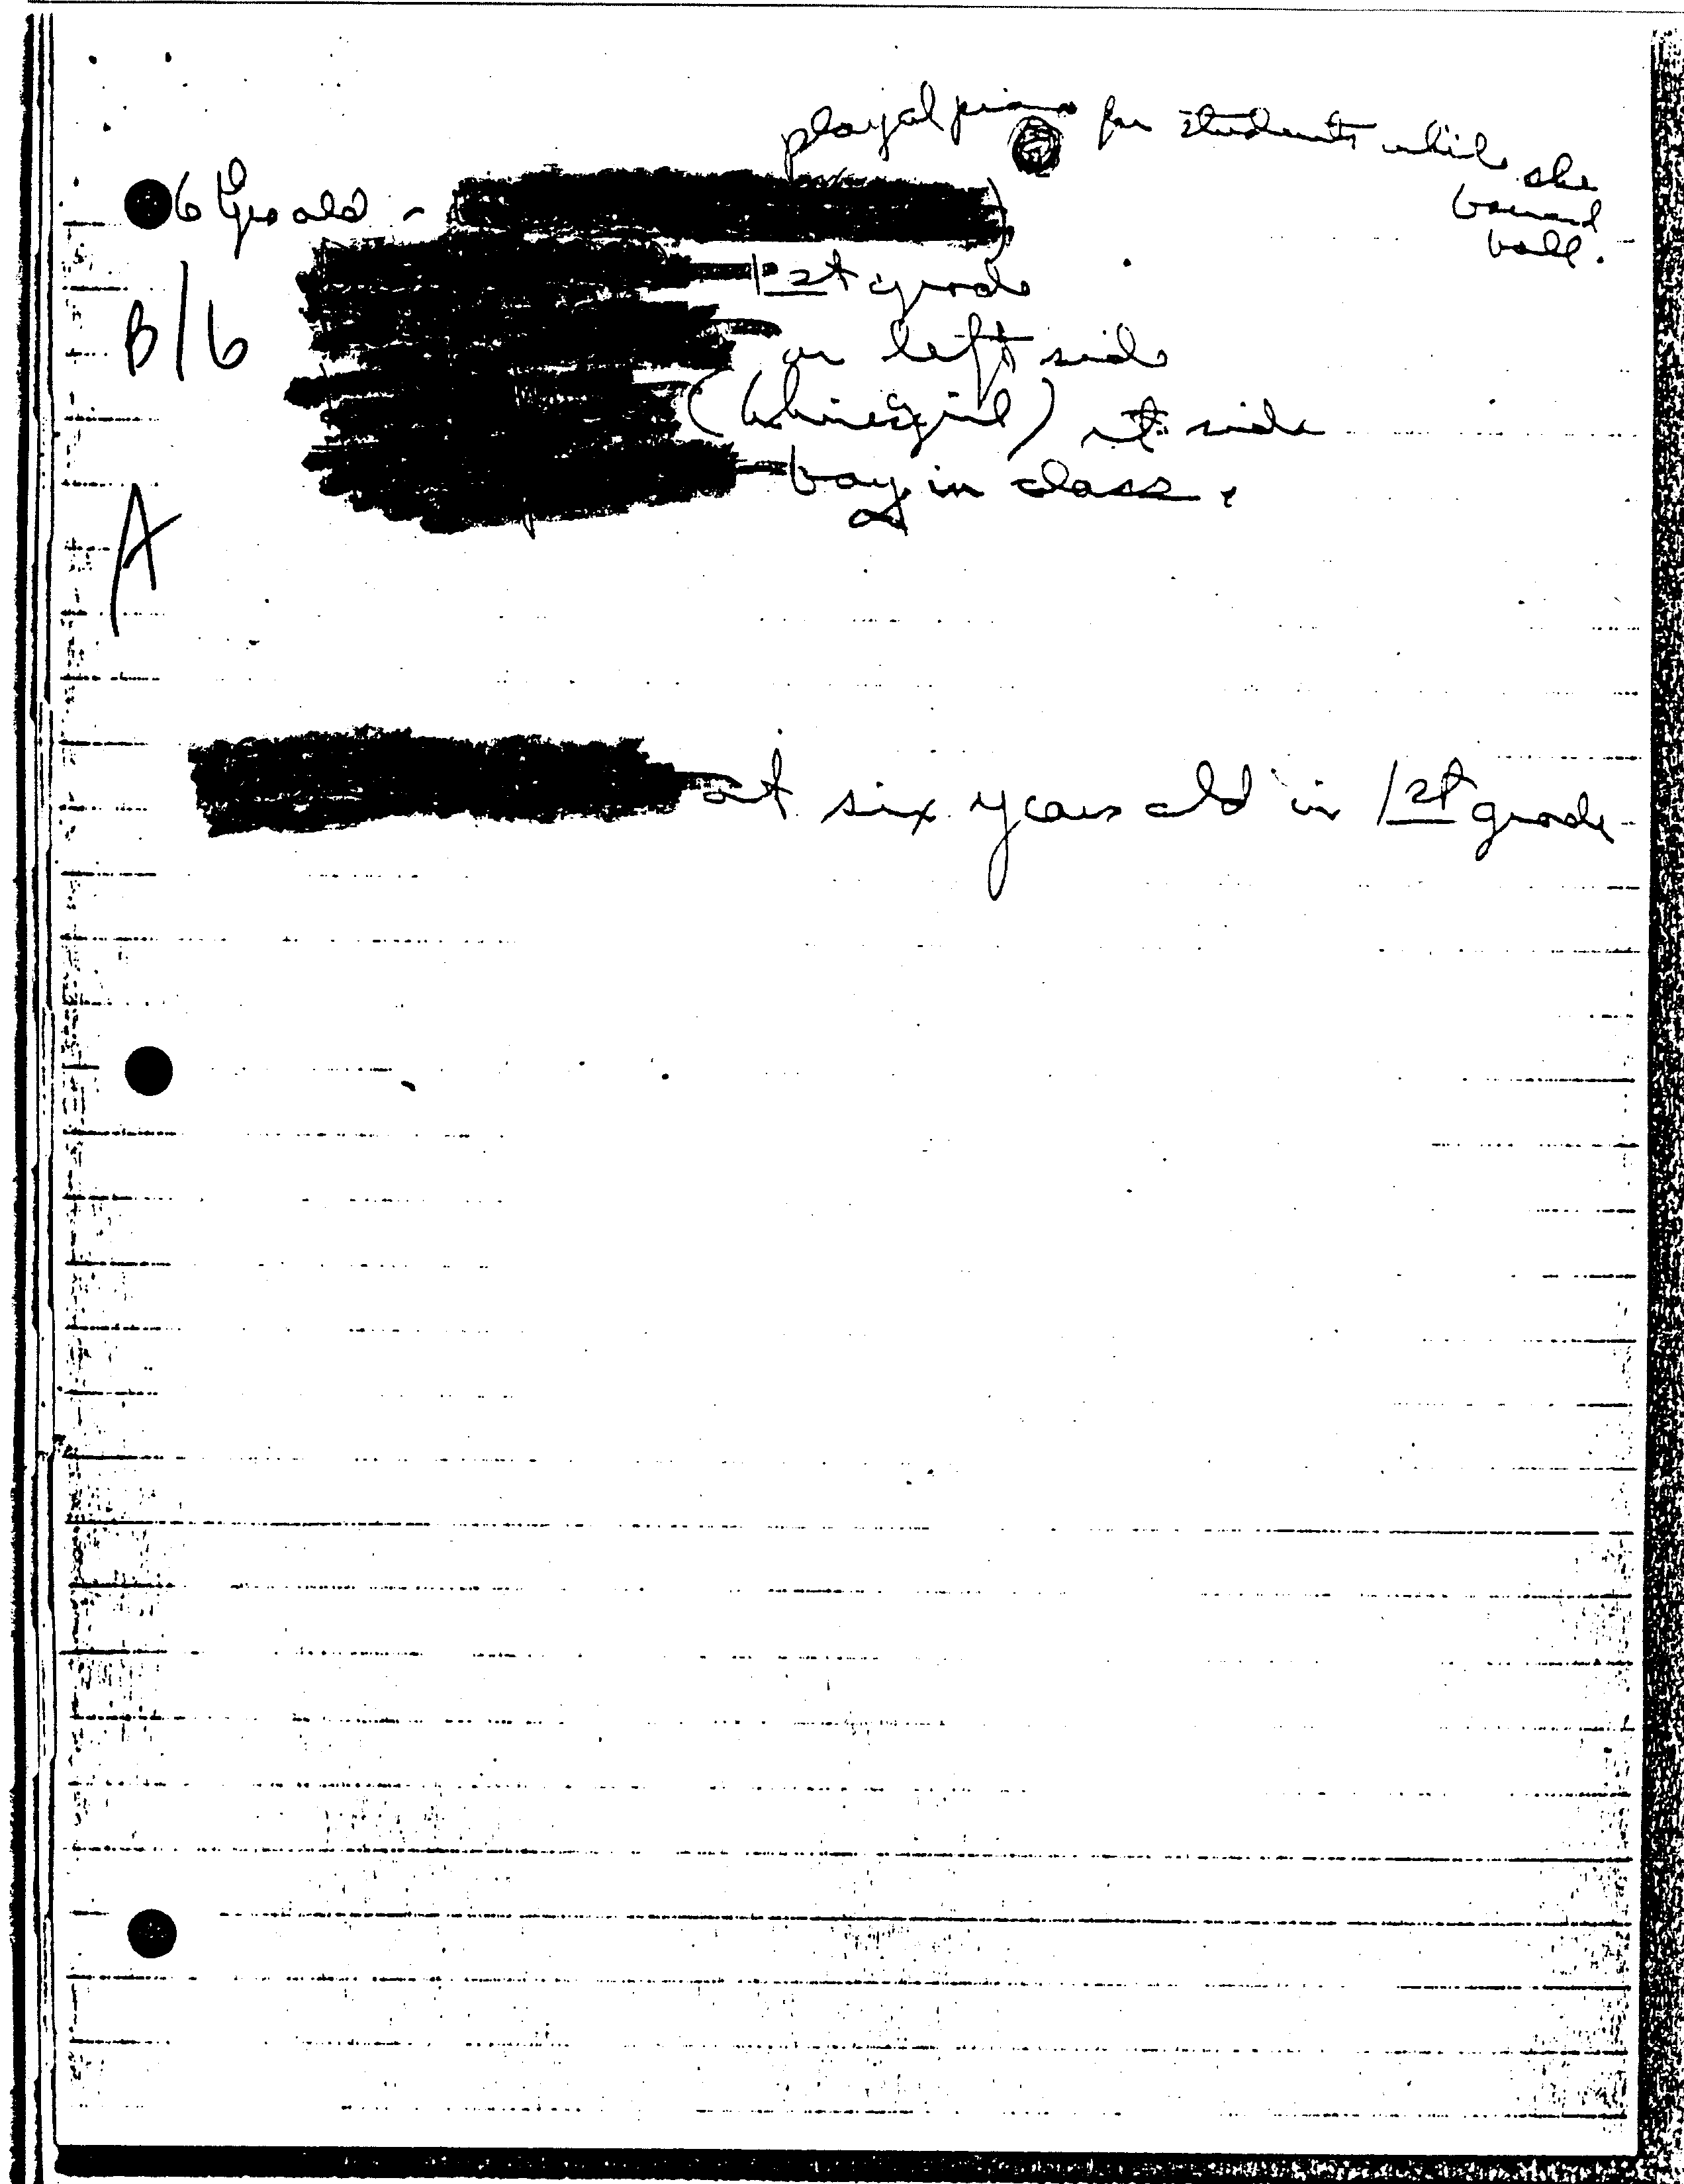 played piano for students while she
bounced
ball.
6 yrs old -
1st grade
B/6
on left side
(Chinese girl) rt side
boy in class.
A
at six years old in 1st grade